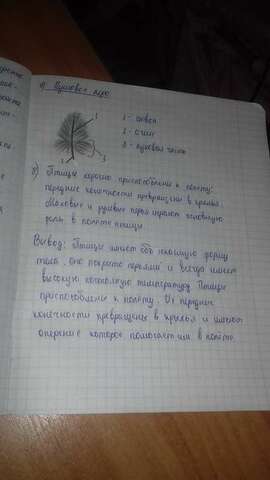 а) Пуховое перо
1
2
3
1 - ствол
2 - очин
3 - пуховая часть
Птицы хорошо приспособлены к полёту:
передние конечности превращены в крылья
Маховые и рулевые перья играют основную
роль в полёте птицы
Вывод: Птицы имеет обтекаемую форму
тела, оно покрыто перьями и всегда имеет
высокую постоянную температуру. Птицы
приспособлены к полёту. Их передние
конечности превращены в крылья и имеют
оперение которое помогает им в полёте.